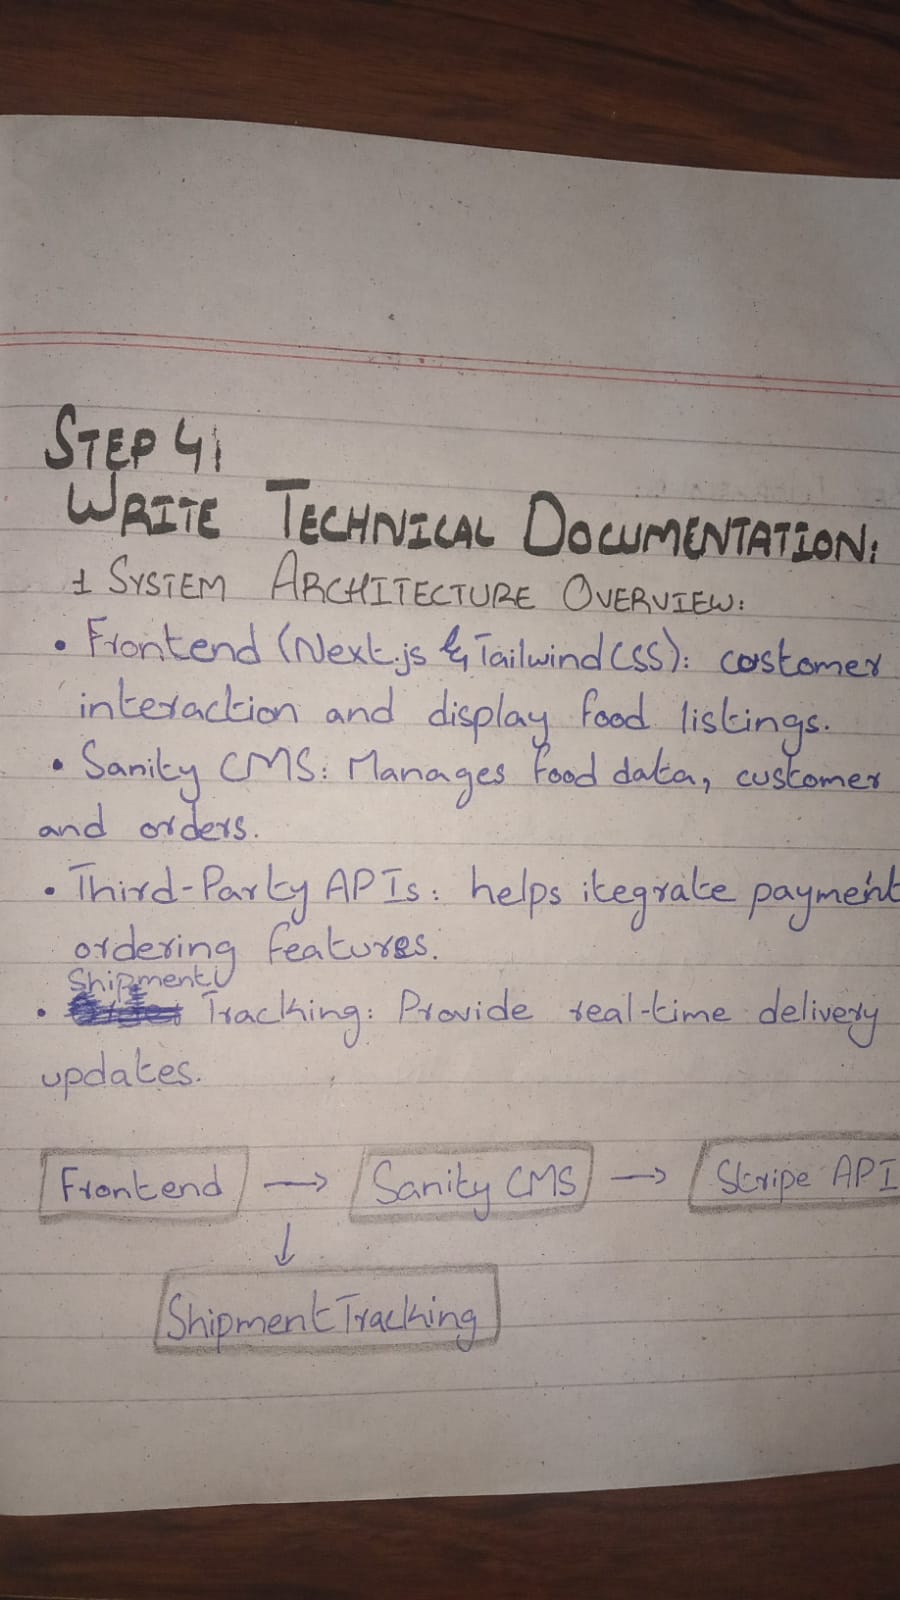 STEP 4:
WRITE TECHNICAL DOCUMENTATION:
1 SYSTEM ARCHITECTURE OVERVIEW:
• Frontend (Next.js & Tailwind CSS): costomer
interaction and display food listings.
• Sanity CMS: Manages food data, customer
and orders.
• Third-Party APIs: helps itegrate payment
ordering features.
Shipment
• Tracking: Provide real-time delivery
updates.
Frontend → Sanity CMS → Stripe API
↓
Shipment Tracking